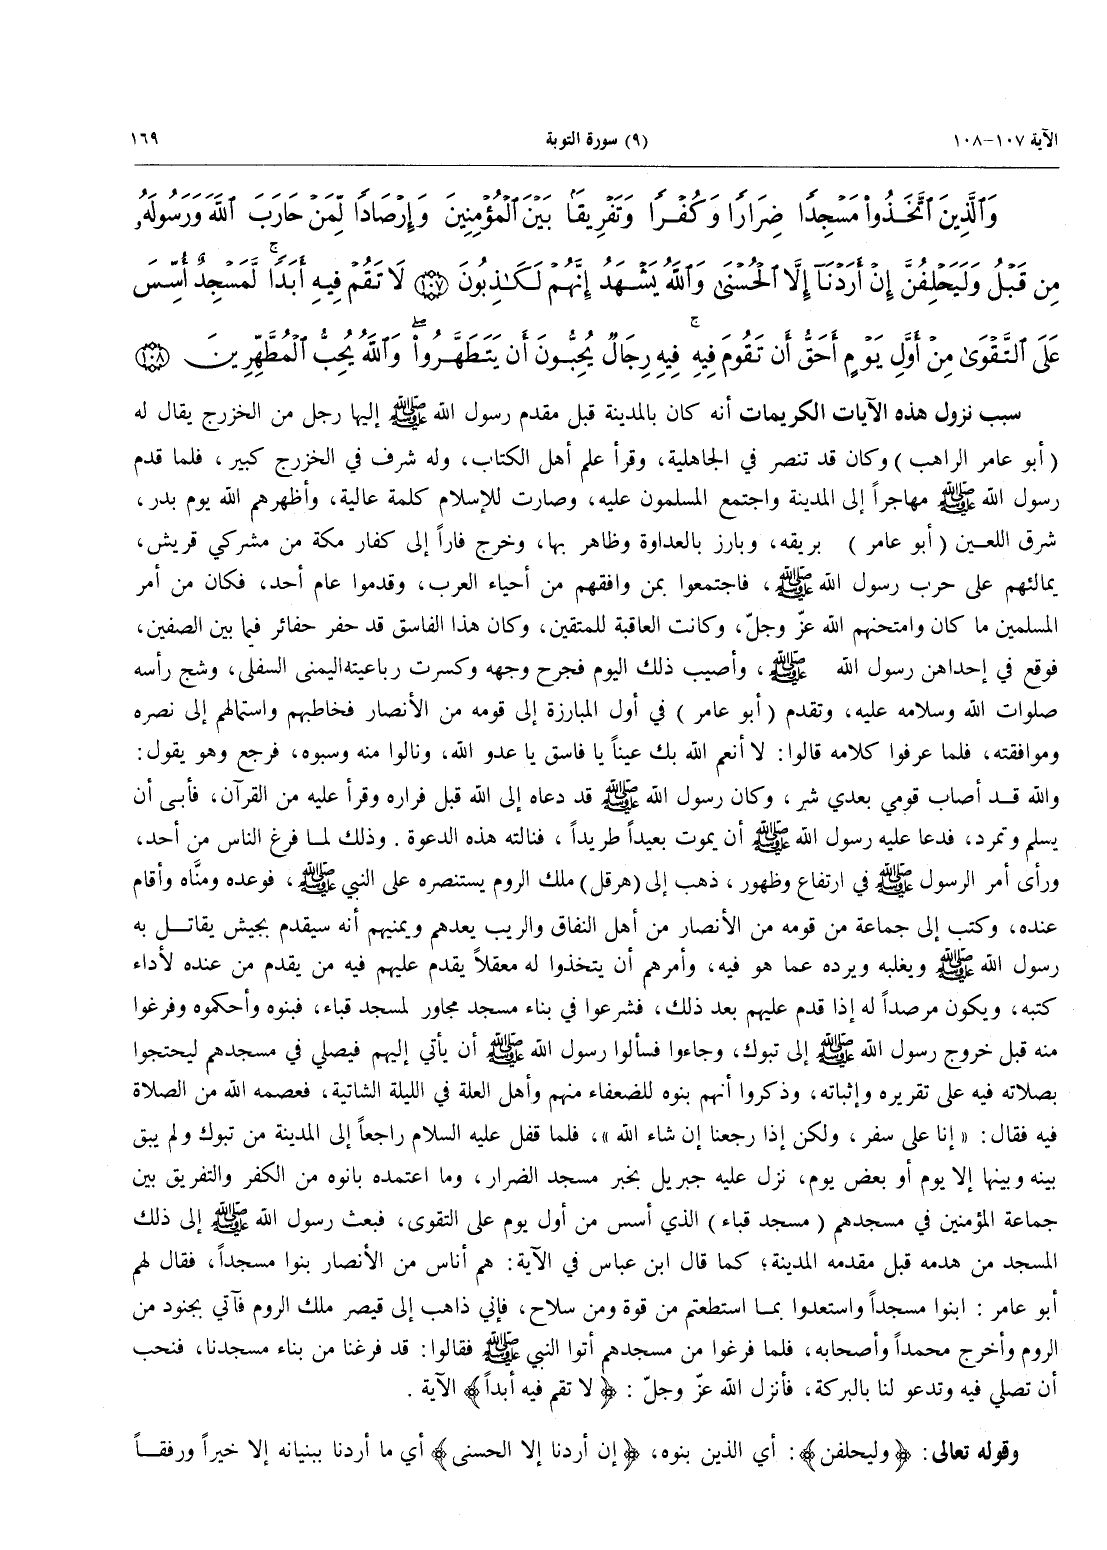 الآية ١٠٧-١٠٨ (٩) سورة التوبة ١٦٩
وَالَّذِينَ اتَّخَذُوا مَسْجِدًا ضِرَارًا وَكُفْرًا وَتَفْرِيقًا بَيْنَ الْمُؤْمِنِينَ وَإِرْصَادًا لِّمَنْ حَارَبَ اللَّهَ وَرَسُولَهُ
مِن قَبْلُ وَلَيَحْلِفُنَّ إِنْ أَرَدْنَا إِلَّا الْحُسْنَىٰ وَاللَّهُ يَشْهَدُ إِنَّهُمْ لَكَاذِبُونَ ﴿١٠٧﴾ لَا تَقُمْ فِيهِ أَبَدًا ۚ لَّمَسْجِدٌ أُسِّسَ
عَلَى التَّقْوَىٰ مِنْ أَوَّلِ يَوْمٍ أَحَقُّ أَن تَقُومَ فِيهِ ۚ فِيهِ رِجَالٌ يُحِبُّونَ أَن يَتَطَهَّرُوا ۖ وَاللَّهُ يُحِبُّ الْمُطَّهِّرِينَ ﴿١٠٨﴾
سبب نزول هذه الآيات الكريمات أنه كان بالمدينة قبل مقدم رسول الله ﷺ إليها رجل من الخزرج يقال له
( أبو عامر الراهب ) وكان قد تنصر في الجاهلية، وقرأ علم أهل الكتاب، وله شرف في الخزرج كبير ، فلما قدم
رسول الله ﷺ مهاجراً إلى المدينة واجتمع المسلمون عليه، وصارت للإسلام كلمة عالية، وأظهرهم الله يوم بدر ،
شرق اللعين ( أبو عامر ) بريقه، وبارز بالعداوة وظاهر بها، وخرج فاراً إلى كفار مكة من مشركي قريش،
يمالئهم على حرب رسول الله ﷺ ، فاجتمعوا بمن وافقهم من أحياء العرب، وقدموا عام أحد، فكان من أمر
المسلمين ما كان وامتحنهم الله عزّ وجلّ، وكانت العاقبة للمتقين، وكان هذا الفاسق قد حفر حفائر فيما بين الصفين،
فوقع في إحداهن رسول الله ﷺ ، وأصيب ذلك اليوم فجرح وجهه وكسرت رباعيته اليمنى السفلى، وشج رأسه
صلوات الله وسلامه عليه، وتقدم ( أبو عامر ) في أول المبارزة إلى قومه من الأنصار فخاطبهم واستمالهم إلى نصره
وموافقته، فلما عرفوا كلامه قالوا: لا أنعم الله بك عيناً يا فاسق يا عدو الله، ونالوا منه وسبوه، فرجع وهو يقول:
والله قد أصاب قومي بعدي شر ، وكان رسول الله ﷺ قد دعاه إلى الله قبل فراره وقرأ عليه من القرآن، فأبى أن
يسلم وتمرد، فدعا عليه رسول الله ﷺ أن يموت بعيداً طريداً ، فنالته هذه الدعوة . وذلك لما فرغ الناس من أحد،
ورأى أمر الرسول ﷺ في ارتفاع وظهور ، ذهب إلى (هرقل) ملك الروم يستنصره على النبي ﷺ ، فوعده ومنَّاه وأقام
عنده، وكتب إلى جماعة من قومه من الأنصار من أهل النفاق والريب يعدهم ويمنيهم أنه سيقدم بجيش يقاتل به
رسول الله ﷺ ويغلبه ويرده عما هو فيه، وأمرهم أن يتخذوا له معقلاً يقدم عليهم فيه من يقدم من عنده لأداء
كتبه، ويكون مرصداً له إذا قدم عليهم بعد ذلك، فشرعوا في بناء مسجد مجاور لمسجد قباء، فبنوه وأحكموه وفرغوا
منه قبل خروج رسول الله ﷺ إلى تبوك، وجاءوا فسألوا رسول الله ﷺ أن يأتي إليهم فيصلي في مسجدهم ليحتجوا
بصلاته فيه على تقريره وإثباته، وذكروا أنهم بنوه للضعفاء منهم وأهل العلة في الليلة الشاتية، فعصمه الله من الصلاة
فيه فقال: « إنا على سفر ، ولكن إذا رجعنا إن شاء الله »، فلما قفل عليه السلام راجعاً إلى المدينة من تبوك ولم يبق
بينه وبينها إلا يوم أو بعض يوم، نزل عليه جبريل بخبر مسجد الضرار ، وما اعتمده بانوه من الكفر والتفريق بين
جماعة المؤمنين في مسجدهم ( مسجد قباء ) الذي أسس من أول يوم على التقوى، فبعث رسول الله ﷺ إلى ذلك
المسجد من هدمه قبل مقدمه المدينة؛ كما قال ابن عباس في الآية: هم أناس من الأنصار بنوا مسجداً، فقال لهم
أبو عامر : ابنوا مسجداً واستعدوا بما استطعتم من قوة ومن سلاح، فإني ذاهب إلى قيصر ملك الروم فآتي بجنود من
الروم وأخرج محمداً وأصحابه، فلما فرغوا من مسجدهم أتوا النبي ﷺ فقالوا: قد فرغنا من بناء مسجدنا، فنحب
أن تصلي فيه وتدعو لنا بالبركة، فأنزل الله عزّ وجلّ : ﴿ لا تقم فيه أبداً ﴾ الآية .
وقوله تعالى: ﴿ وليحلفن ﴾: أي الذين بنوه، ﴿ إن أردنا إلا الحسنى ﴾ أي ما أردنا ببنيانه إلا خيراً ورفقاً